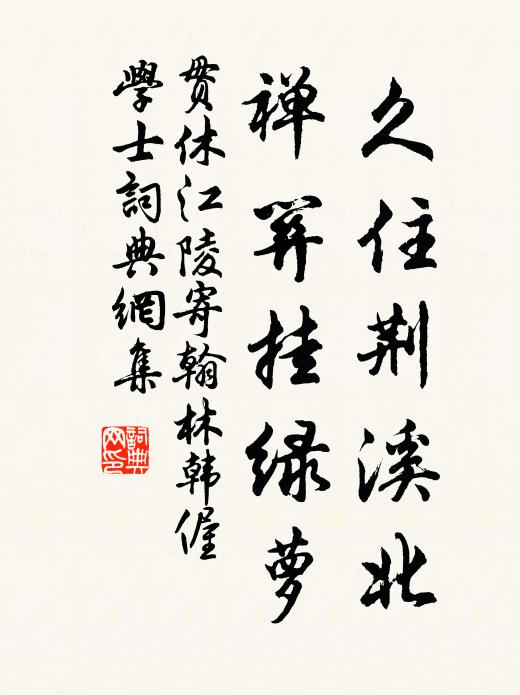 久住荆溪北
禅关挂绿萝
貫休江陵寄翰林韩偓
學士詞典網集
詞典网印